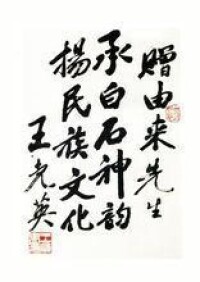 赠由来先生
承白石神韵
揚民族文化
王光英